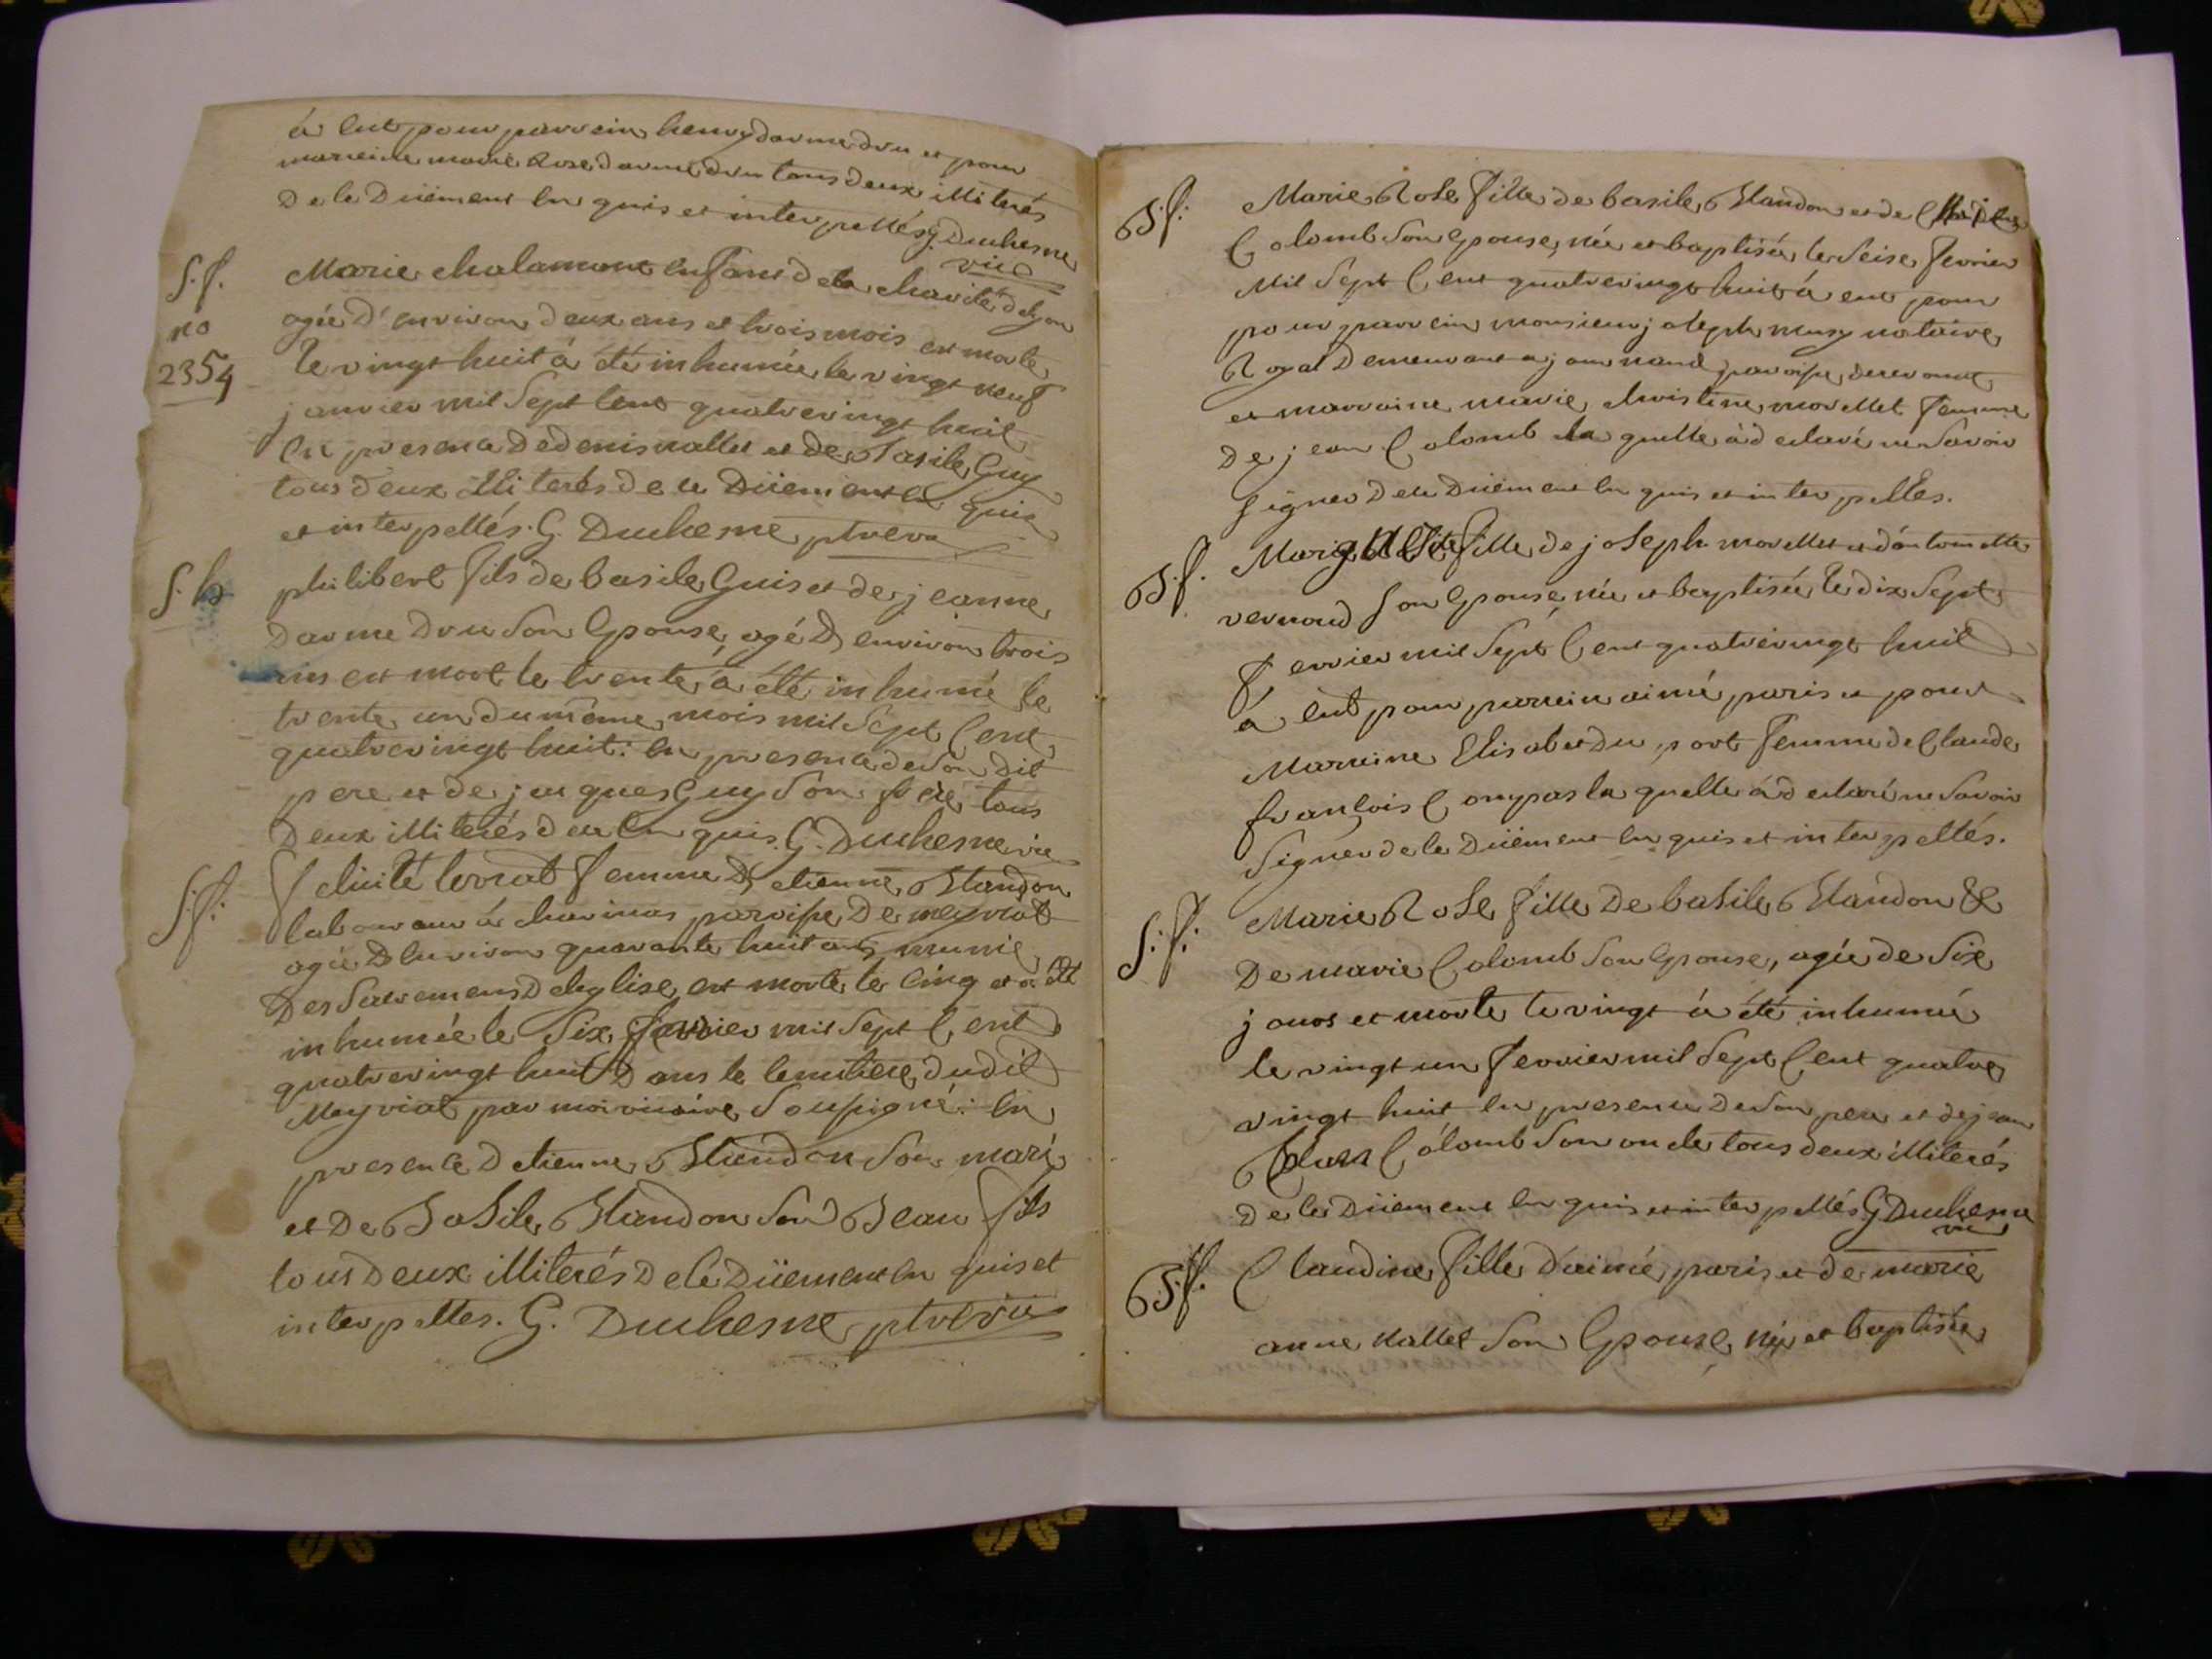 á eut pour parrein henry darmedru et pour
marreine marie Rose darmedru tous deux illiterés
De ce Düement en quis et inter pellés G. Duchesne
vic
S. f.
no
2354
Marie chalamont enfant de la charité de lyon
agée D'environ deux ans et trois mois est morte
le vingt huit á été inhumée le vingt neuf
janvier mil Sept Cent quatrevingt huit
En presence De denis nallet et de Basile Guy
tous deux illiterés de ce Düement en quis
et inter pellés. G. Duchesne ptre vic
S. h
philibert fils de basile Guis et de jeanne
Darme Dru Son Epouse, agé D environ trois
ans est mort le trente, á été inhumé le
trente un du même mois mil Sept Cent
quatrevingt huit: en presence de Son dit
pere et de jacques Guy Son frere tous
Deux illiterés de ce En quis. G. Duchesne vic
S. f:
felicité femme D etienne Blandon
laboureur á chavinas paroisse De meyriat
agée D Environ quarante huit ans munie
Des Sacremens D eglise, est morte le Cinq et a été
inhumée le Six fevrier mil Sept Cent
quatrevingt huit D ans le Cemitiere dudit
Meyriat par moi vicaire Soussigné: En
presence D etienne Blandon Son mari
et De BaSile Blandon Son Beau fils
tous Deux illiterés De ce Düement en quis et
inter pelles. G. Duchesne ptre vic
B. f:
Marie RoSe fille de basile Blandon et de
Colomb Son Epouse, née et baptisée le Seise fevrier
Mil Sept Cent quatrevingt huit á eut pour
pour parrein monsieur joseph musy notaire
Royal Demeurant a journans paroisse
et marraine marie christine morellet femme
De jean Colomb la quelle á declaré ne Savoir
Signer De ce Düement en quis et inter pelles.
B. f.
fille de joSeph morellet et d'antoinette
vernoud Son Epouse, née et baptisée le dix Sept
Fevrier mil Sept Cent quatrevingt huit
á eut pour parrein aimé paris et pour
Marreine Elisabet Du port femme de Claude
françois Compas la quelle á declaré ne Savoir
Signer de ce Düement en quis et inter pellés.
S. f:
Marie RoSe fille De baSile Blandon &
De marie Colomb Son Epouse, agée de Six
jours et morte le vingt á été inhumée
le vingt un Fevrier mil Sept Cent quatre
vingt huit en presence De Son pere et de jean
Colomb Son oncle tous deux illiterés
De ce Düement en quis et inter pellés G Duchesne
vic
B. f.
Claudine fille D'aimé paris et de marie
anne nallet Son Epouse, née et baptisée